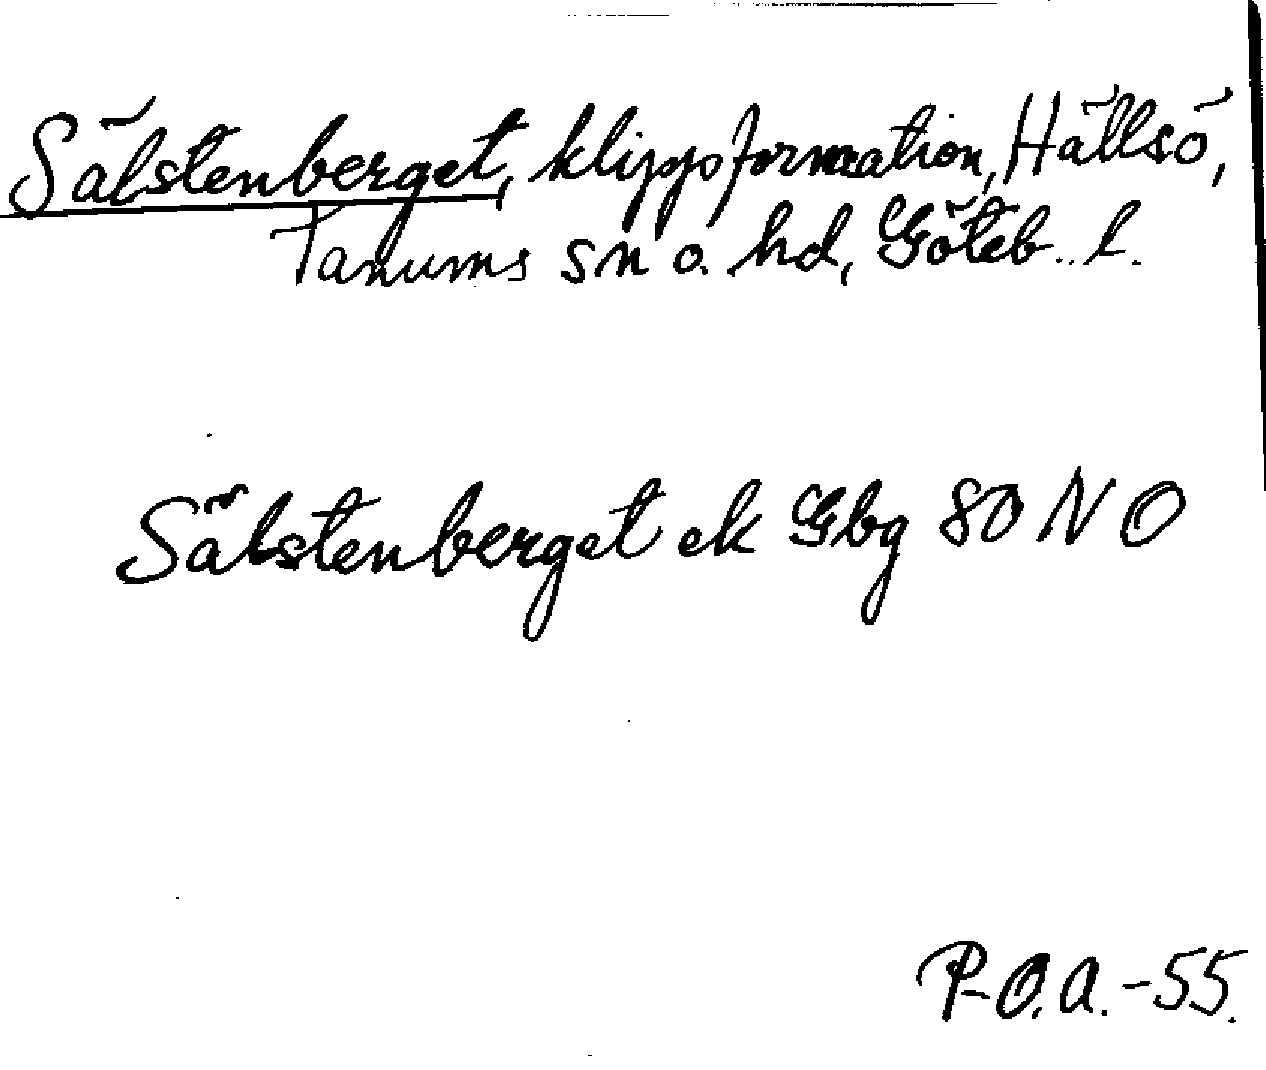 Sälstenberget, klippformation, Hällsö,
Tanums sn o. hd, Göteb. l.
Sälstenberget ek Gbg 80 NO
P-O.A.-55.